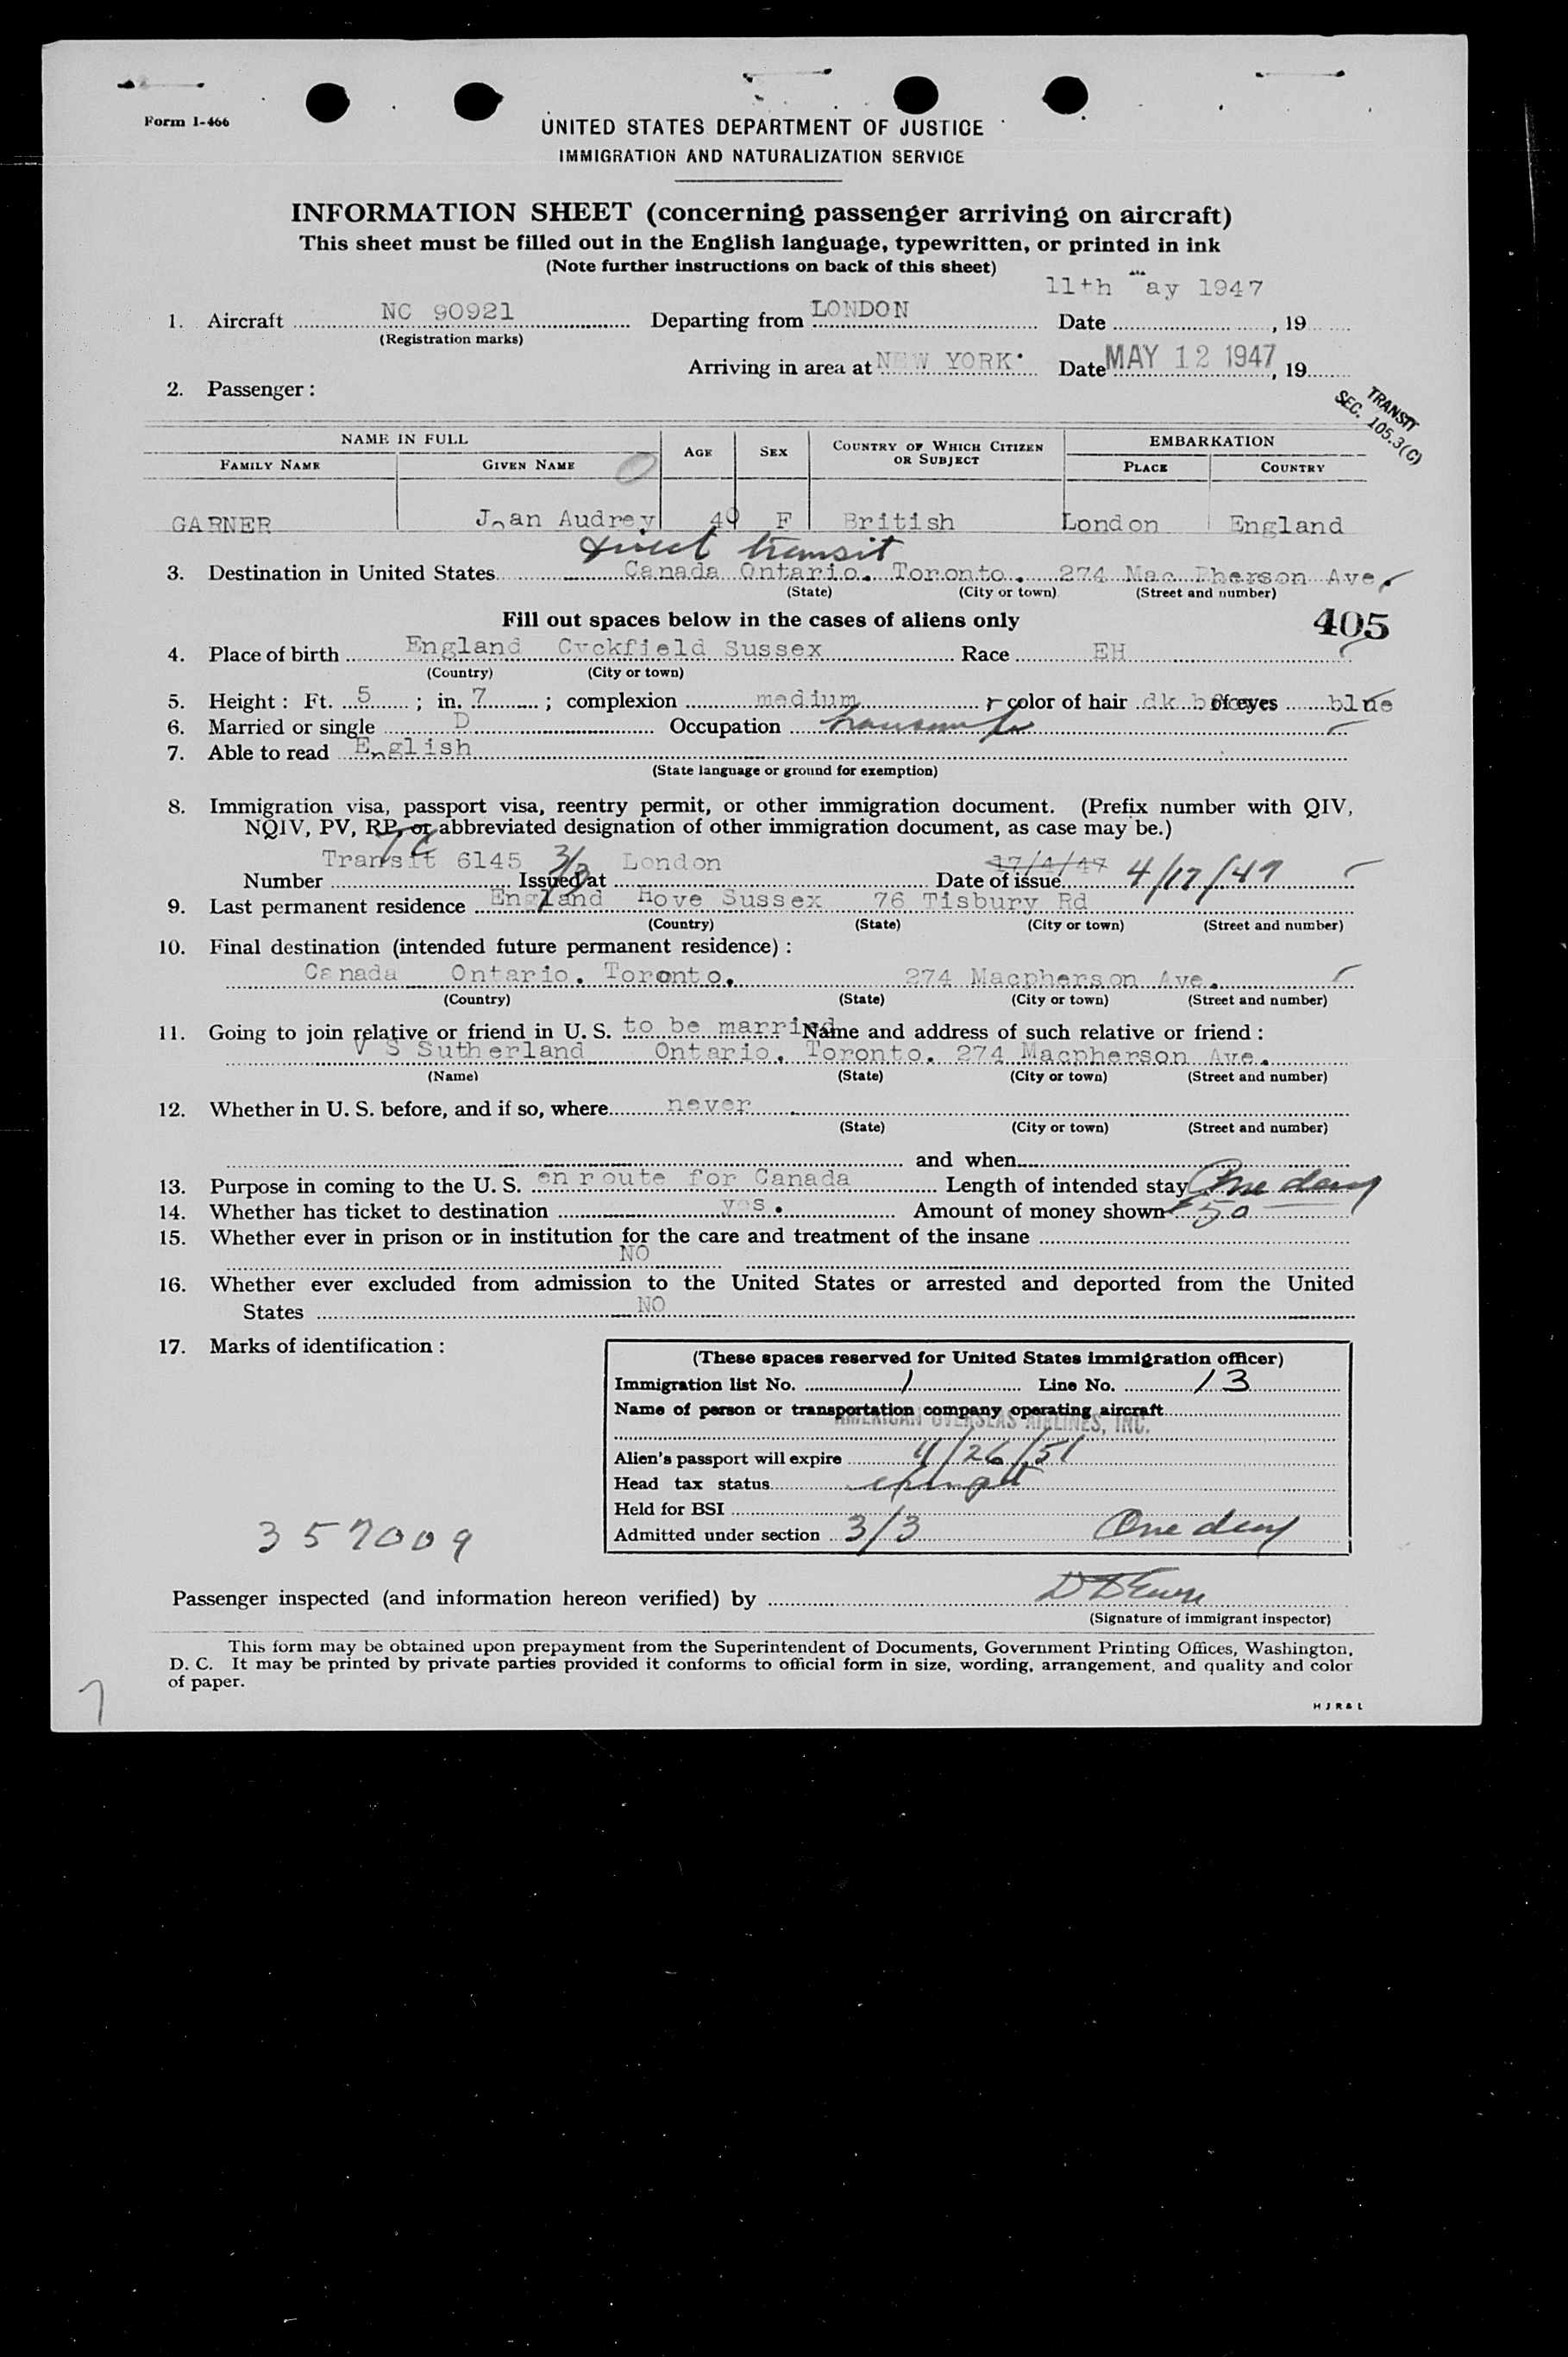 Form I-466
UNITED STATES DEPARTMENT OF JUSTICE
IMMIGRATION AND NATURALIZATION SERVICE
INFORMATION SHEET (concerning passenger arriving on aircraft)
This sheet must be filled out in the English language, typewritten, or printed in ink
(Note further instructions on back of this sheet)
11th May 1947
1. Aircraft NC 90921 Departing from LONDON Date , 19
(Registration marks)
Arriving in area at NEW YORK. Date MAY 12 1947, 19
2. Passenger :
TRANSIT
SEC. 105.3(C)
NAME IN FULL AGE SEX COUNTRY OF WHICH CITIZEN OR SUBJECT EMBARKATION
FAMILY NAME GIVEN NAME PLACE COUNTRY
GARNER Joan Audrey 40 F British London England
direct transit
3. Destination in United States Canada Ontario. Toronto. 274 Mac Pherson Ave.
(State) (City or town) (Street and number)
Fill out spaces below in the cases of aliens only 405
4. Place of birth England Cyckfield Sussex Race EH
(Country) (City or town)
5. Height : Ft. 5 ; in. 7 ; complexion medium ; color of hair dk of eyes blue
6. Married or single D Occupation
7. Able to read English
(State language or ground for exemption)
8. Immigration visa, passport visa, reentry permit, or other immigration document. (Prefix number with QIV,
NQIV, PV, RP, or abbreviated designation of other immigration document, as case may be.)
TC
Transit 6145 3/3 London 17/4/47 4/17/47
Number Issued at Date of issue
9. Last permanent residence England Hove Sussex 76 Tisbury Rd
(Country) (State) (City or town) (Street and number)
10. Final destination (intended future permanent residence) :
Canada Ontario. Toronto. 274 Macpherson Ave.
(Country) (State) (City or town) (Street and number)
11. Going to join relative or friend in U. S. to be married Name and address of such relative or friend :
V S Sutherland Ontario. Toronto. 274 Macpherson Ave.
(Name) (State) (City or town) (Street and number)
12. Whether in U. S. before, and if so, where never
(State) (City or town) (Street and number)
and when
13. Purpose in coming to the U. S. en route for Canada Length of intended stay One day
14. Whether has ticket to destination yes. Amount of money shown 50
15. Whether ever in prison or in institution for the care and treatment of the insane
NO
16. Whether ever excluded from admission to the United States or arrested and deported from the United
States NO
17. Marks of identification :
(These spaces reserved for United States immigration officer)
Immigration list No. 1 Line No. 13
Name of person or transportation company operating aircraft
AMERICAN OVERSEAS AIRLINES, INC.
Alien's passport will expire 11/26/51
Head tax status exempt
Held for BSI
Admitted under section 3/3 One day
357009
Passenger inspected (and information hereon verified) by
(Signature of immigrant inspector)
This form may be obtained upon prepayment from the Superintendent of Documents, Government Printing Offices, Washington,
D. C. It may be printed by private parties provided it conforms to official form in size, wording, arrangement, and quality and color
of paper.
7
H J R & L